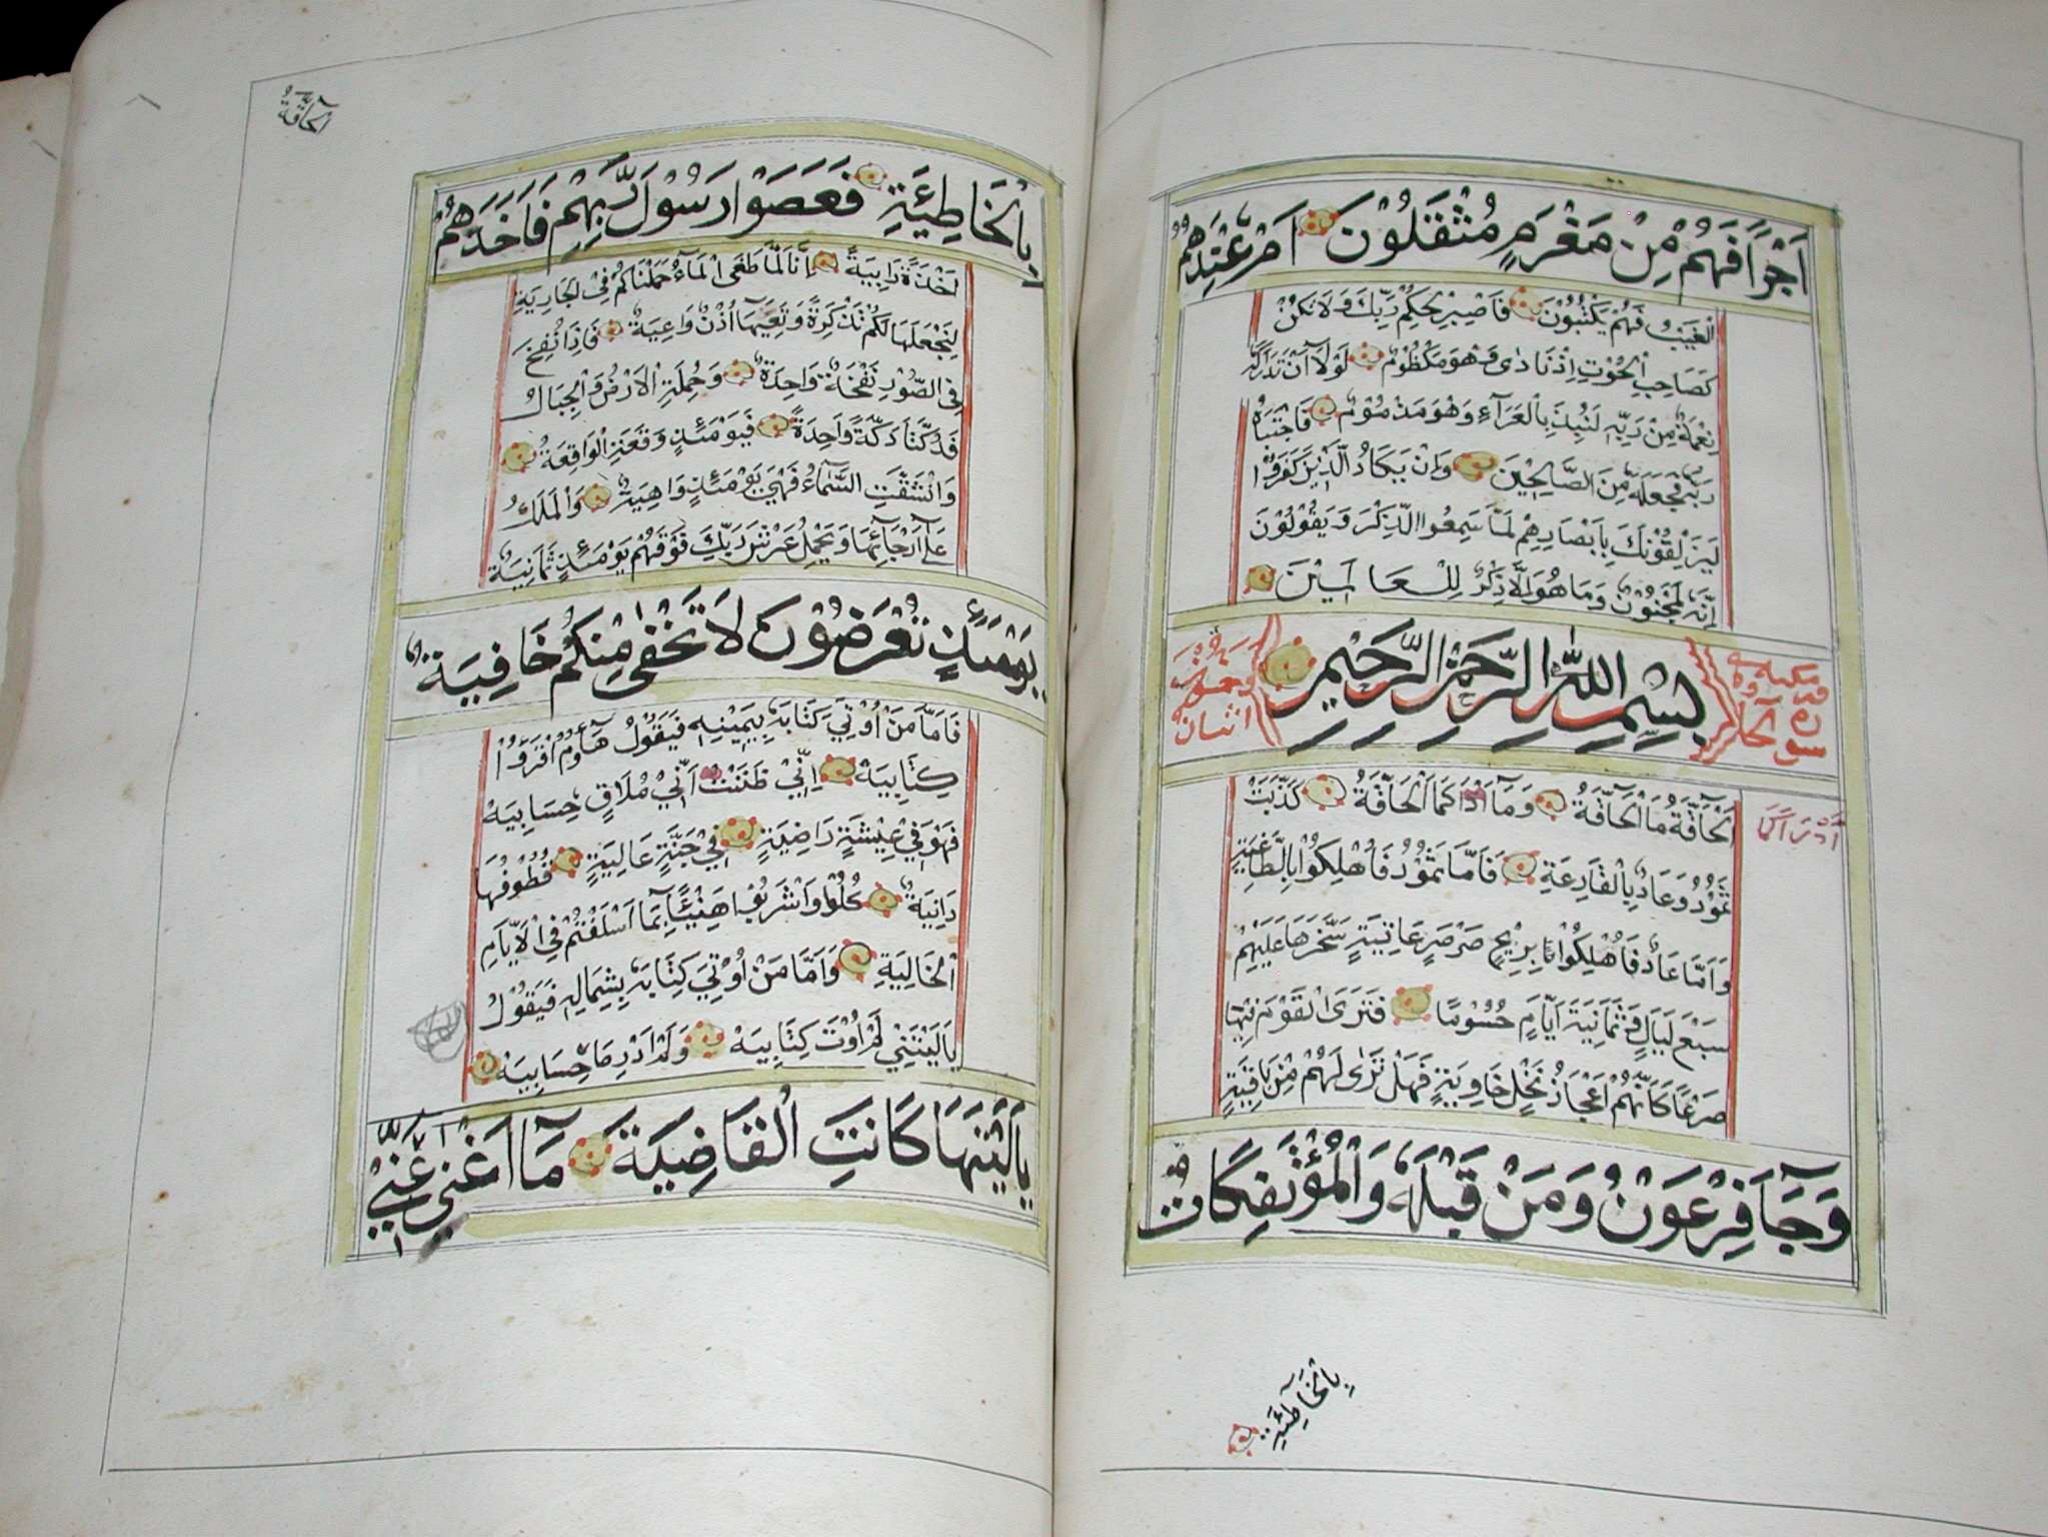 اَجْرًا فَهُمْ مِنْ مَغْرَمٍ مُثْقَلُوْنَ اَمْ عِنْدَهُمُ
الْغَيْبُ فَهُمْ يَكْتُبُوْنَ فَاصْبِرْ لِحُكْمِ رَبِّكَ وَلَا تَكُنْ
كَصَاحِبِ الْحُوْتِ اِذْ نَادٰى وَهُوَ مَكْظُوْمٌ لَوْلَا اَنْ تَدَارَكَهُ
نِعْمَةٌ مِنْ رَبِّهٖ لَنُبِذَ بِالْعَرَآءِ وَهُوَ مَذْمُوْمٌ فَاجْتَبَاهُ
رَبُّهُ فَجَعَلَهُ مِنَ الصَّالِحِيْنَ وَاِنْ يَكَادُ الَّذِيْنَ كَفَرُوْا
لَيُزْلِقُوْنَكَ بِاَبْصَارِهِمْ لَمَّا سَمِعُوا الذِّكْرَ وَيَقُوْلُوْنَ
اِنَّهُ لَمَجْنُوْنٌ وَمَا هُوَ اِلَّا ذِكْرٌ لِلْعَالَمِيْنَ
سورة الحاقة مكية
بِسْمِ اللّٰهِ الرَّحْمٰنِ الرَّحِيْمِ
اَلْحَآقَّةُ مَا الْحَآقَّةُ وَمَآ اَدْرَاكَ مَا الْحَآقَّةُ كَذَّبَتْ
اَدْرَاكَ
ثَمُوْدُ وَعَادٌ بِالْقَارِعَةِ فَاَمَّا ثَمُوْدُ فَاُهْلِكُوْا بِالطَّاغِيَةِ
وَاَمَّا عَادٌ فَاُهْلِكُوْا بِرِيْحٍ صَرْصَرٍ عَاتِيَةٍ سَخَّرَهَا عَلَيْهِمْ
سَبْعَ لَيَالٍ وَثَمَانِيَةَ اَيَّامٍ حُسُوْمًا فَتَرَى الْقَوْمَ فِيْهَا
صَرْعٰى كَاَنَّهُمْ اَعْجَازُ نَخْلٍ خَاوِيَةٍ فَهَلْ تَرٰى لَهُمْ مِنْ بَاقِيَةٍ
وَجَآءَ فِرْعَوْنُ وَمَنْ قَبْلَهُ وَالْمُؤْتَفِكَاتُ
بِالْخَاطِئَةِ
الحآقَّةُ
بِالْخَاطِئَةِ فَعَصَوْا رَسُوْلَ رَبِّهِمْ فَاَخَذَهُمْ
اَخْذَةً رَابِيَةً اِنَّا لَمَّا طَغَى الْمَآءُ حَمَلْنَاكُمْ فِى الْجَارِيَةِ
لِنَجْعَلَهَا لَكُمْ تَذْكِرَةً وَتَعِيَهَا اُذُنٌ وَاعِيَةٌ فَاِذَا نُفِخَ
فِى الصُّوْرِ نَفْخَةٌ وَاحِدَةٌ وَحُمِلَتِ الْاَرْضُ وَالْجِبَالُ
فَدُكَّتَا دَكَّةً وَاحِدَةً فَيَوْمَئِذٍ وَقَعَتِ الْوَاقِعَةُ
وَانْشَقَّتِ السَّمَآءُ فَهِيَ يَوْمَئِذٍ وَاهِيَةٌ وَالْمَلَكُ
عَلٰى اَرْجَآئِهَا وَيَحْمِلُ عَرْشَ رَبِّكَ فَوْقَهُمْ يَوْمَئِذٍ ثَمَانِيَةٌ
يَوْمَئِذٍ تُعْرَضُوْنَ لَا تَخْفٰى مِنْكُمْ خَافِيَةٌ
فَاَمَّا مَنْ اُوْتِيَ كِتَابَهُ بِيَمِيْنِهٖ فَيَقُوْلُ هَآؤُمُ اقْرَؤُا
كِتَابِيَهْ اِنِّيْ ظَنَنْتُ اَنِّيْ مُلَاقٍ حِسَابِيَهْ
فَهُوَ فِيْ عِيْشَةٍ رَاضِيَةٍ فِيْ جَنَّةٍ عَالِيَةٍ قُطُوْفُهَا
دَانِيَةٌ كُلُوْا وَاشْرَبُوْا هَنِيْئًا بِمَا اَسْلَفْتُمْ فِى الْاَيَّامِ
الْخَالِيَةِ وَاَمَّا مَنْ اُوْتِيَ كِتَابَهُ بِشِمَالِهٖ فَيَقُوْلُ
يَالَيْتَنِيْ لَمْ اُوْتَ كِتَابِيَهْ وَلَمْ اَدْرِ مَا حِسَابِيَهْ
يَالَيْتَهَا كَانَتِ الْقَاضِيَةَ مَآ اَغْنٰى عَنِّيْ